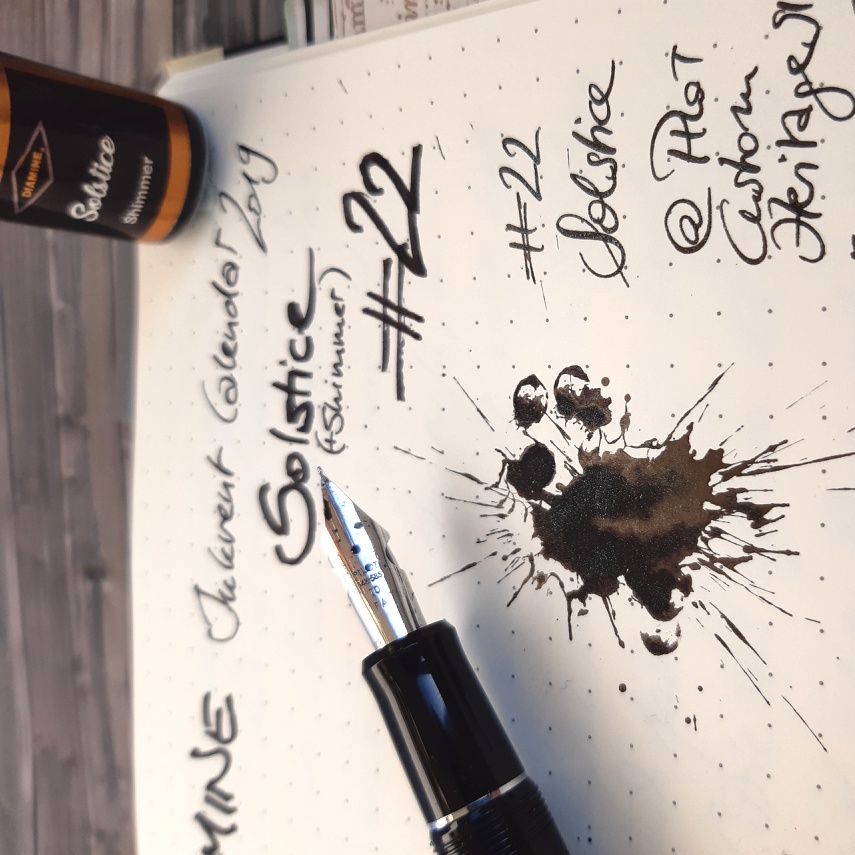 MINE Inkvent Calendar 2019
Solstice
(+Shimmer)
#22
#22
Solstice
@ Pilot
Custom
Heritage 91
DIAMINE
Solstice
Shimmer